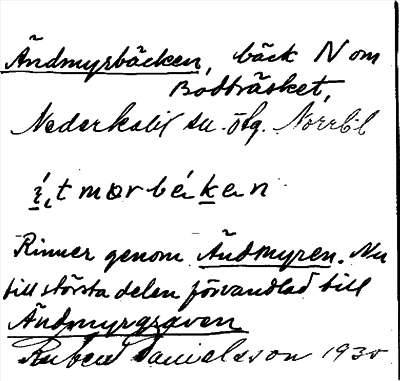 Ändmyrbäcken, bäck N om
Bodträsket,
Nederkalix sn. ötg. Norrb. l
ę́ı̨tmǝrbék̲ǝn
Rinner genom Ändmyren. Nu
till största delen förvandlad till
Ändmyrgraven
Ruben Danielsson 1935